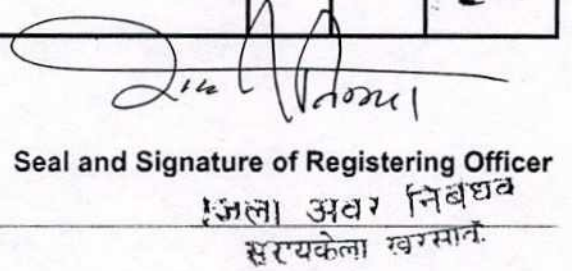 Seal and Signature of Registering Officer
जिला अवर निबंधक
सरायकेला खरसावां